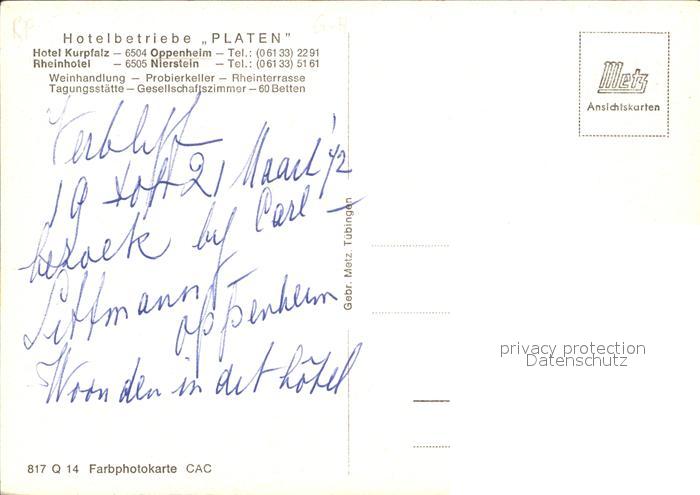 Hotelbetriebe „PLATEN"
Hotel Kurpfalz – 6504 Oppenheim – Tel.: (0 61 33) 22 91
Rheinhotel – 6505 Nierstein – Tel.: (0 61 33) 51 61
Weinhandlung – Probierkeller – Rheinterrasse
Tagungsstätte – Gesellschaftszimmer – 60 Betten
Metz
Ansichtskarten
Verblijf
19 21 Maart '72
bezoek by Carl
Littmann –
Oppenheim
Woonden in dit hôtel
Gebr. Metz, Tübingen
privacy protection
Datenschutz
817 Q 14 Farbphotokarte CAC